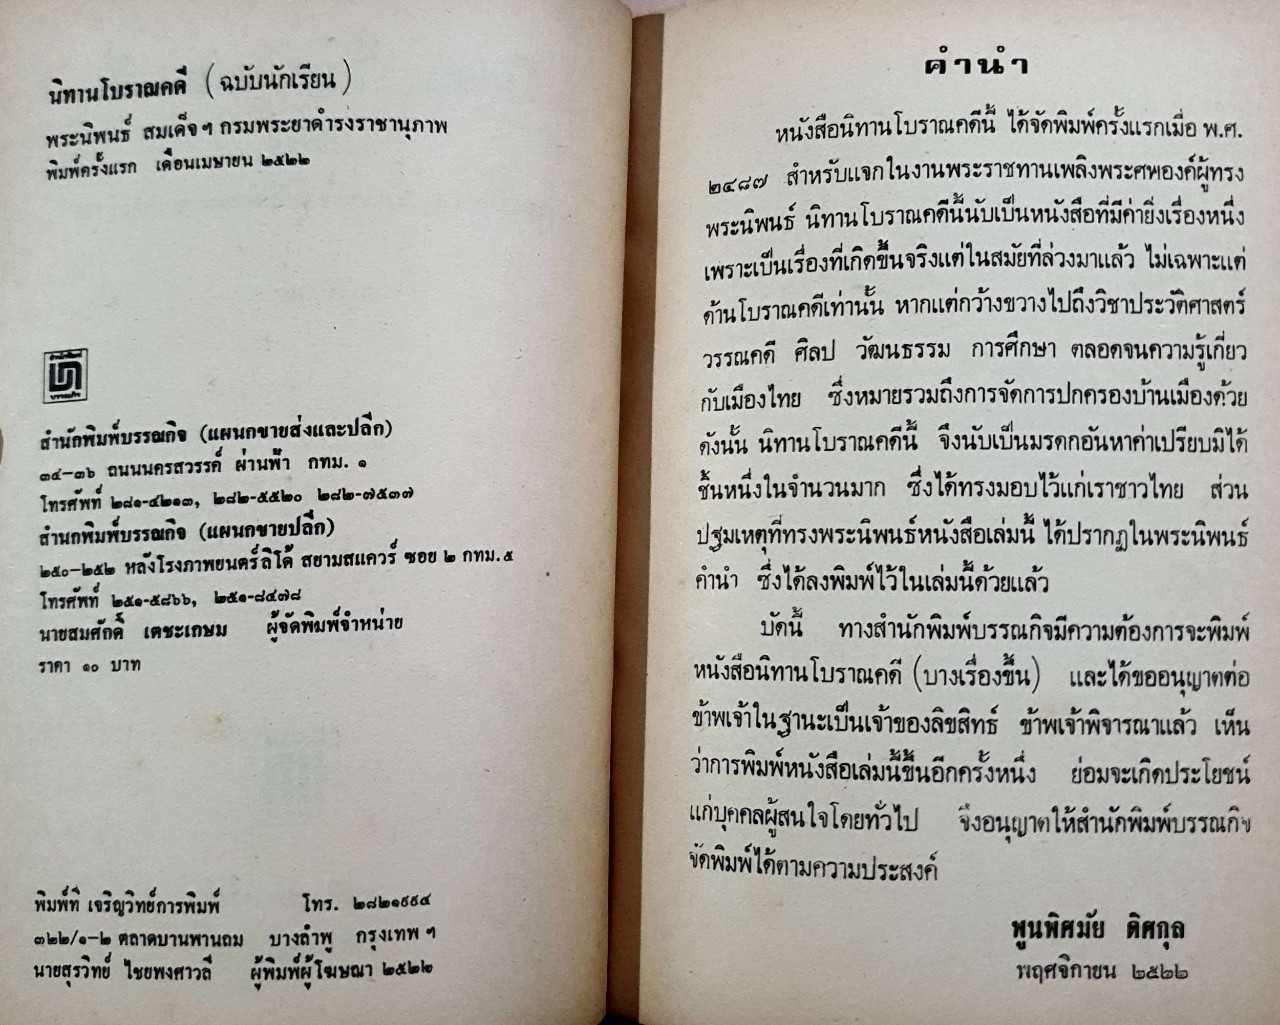 นิทานโบราณคดี (ฉบับนักเรียน)
พระนิพนธ์ สมเด็จฯ กรมพระยาดำรงราชานุภาพ
พิมพ์ครั้งแรก เดือนเมษายน ๒๕๒๒
สำนักพิมพ์
บรรณกิจ
สำนักพิมพ์บรรณกิจ (แผนกขายส่งและปลีก)
๓๔-๓๖ ถนนนครสวรรค์ ผ่านฟ้า กทม. ๑
โทรศัพท์ ๒๘๑-๔๒๑๓, ๒๘๒-๕๕๒๐ ๒๘๒-๗๕๓๗
สำนกพิมพ์บรรณกิจ (แผนกขายปลีก)
๒๕๐-๒๕๒ หลังโรงภาพยนตร์ลิโด้ สยามสแควร์ ซอย ๒ กทม.๕
โทรศัพท์ ๒๕๑-๕๘๖๖, ๒๕๑-๘๔๗๘
นายสมศักดิ์ เตชะเกษม ผู้จัดพิมพ์จำหน่าย
ราคา ๑๐ บาท
พิมพ์ที่ เจริญวิทย์การพิมพ์ โทร. ๒๘๒๑๙๙๔
๓๒๒/๑-๒ ตลาดบานพานถม บางลำพู กรุงเทพฯ
นายสุรวิทย์ ไชยพงศาวลี ผู้พิมพ์ผู้โฆษณา ๒๕๒๒
คำนำ
หนังสือนิทานโบราณคดีนี้ ได้จัดพิมพ์ครั้งแรกเมื่อ พ.ศ.
๒๔๘๗ สำหรับแจกในงานพระราชทานเพลิงพระศพองค์ผู้ทรง
พระนิพนธ์ นิทานโบราณคดีนี้นับเป็นหนังสือที่มีค่ายิ่งเรื่องหนึ่ง
เพราะเป็นเรื่องที่เกิดขึ้นจริงแต่ในสมัยที่ล่วงมาแล้ว ไม่เฉพาะแต่
ด้านโบราณคดีเท่านั้น หากแต่กว้างขวางไปถึงวิชาประวัติศาสตร์
วรรณคดี ศิลป วัฒนธรรม การศึกษา ตลอดจนความรู้เกี่ยว
กับเมืองไทย ซึ่งหมายรวมถึงการจัดการปกครองบ้านเมืองด้วย
ดังนั้น นิทานโบราณคดีนี้ จึงนับเป็นมรดกอันหาค่าเปรียบมิได้
ชิ้นหนึ่งในจำนวนมาก ซึ่งได้ทรงมอบไว้แก่เราชาวไทย ส่วน
ปฐมเหตุที่ทรงพระนิพนธ์หนังสือเล่มนี้ ได้ปรากฏในพระนิพนธ์
คำนำ ซึ่งได้ลงพิมพ์ไว้ในเล่มนี้ด้วยแล้ว
บัดนี้ ทางสำนักพิมพ์บรรณกิจมีความต้องการจะพิมพ์
หนังสือนิทานโบราณคดี (บางเรื่องขึ้น) และได้ขออนุญาตต่อ
ข้าพเจ้าในฐานะเป็นเจ้าของลิขสิทธ์ ข้าพเจ้าพิจารณาแล้ว เห็น
ว่าการพิมพ์หนังสือเล่มนี้ขึ้นอีกครั้งหนึ่ง ย่อมจะเกิดประโยชน์
แก่บุคคลผู้สนใจโดยทั่วไป จึงอนุญาตให้สำนักพิมพ์บรรณกิจ
จัดพิมพ์ได้ตามความประสงค์
พูนพิศมัย ดิศกุล
พฤศจิกายน ๒๕๒๒